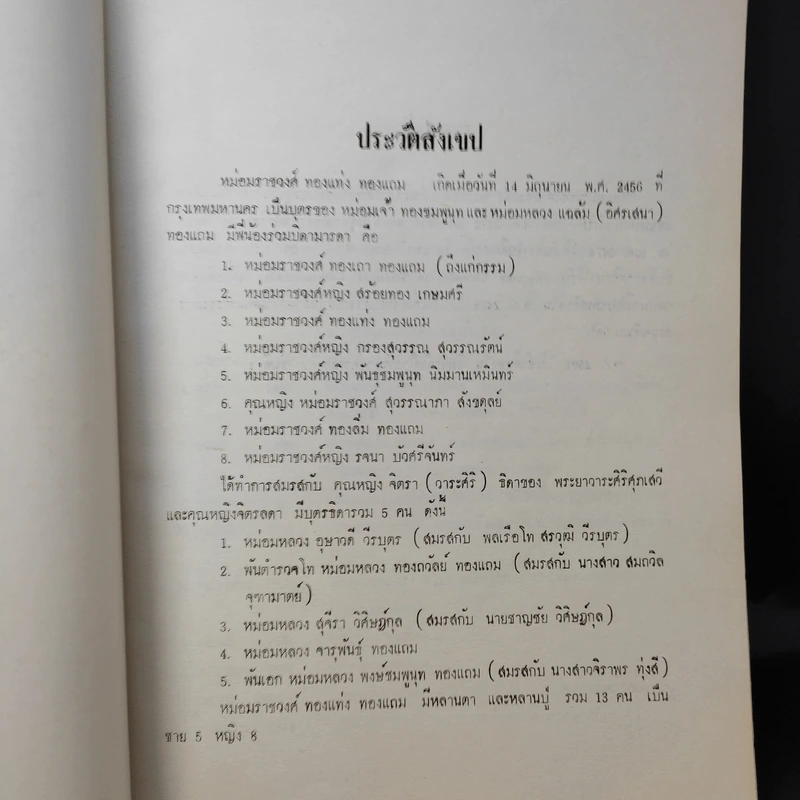 ประวัติสังเขป
หม่อมราชวงศ์ ทองแท่ง ทองแถม เกิดเมื่อวันที่ 14 มิถุนายน พ.ศ. 2456 ที่
กรุงเทพมหานคร เป็นบุตรของ หม่อมเจ้า ทองชมพูนุท และ หม่อมหลวง แฉล้ม (อิศรเสนา)
ทองแถม มีพี่น้องร่วมบิดามารดา คือ
1. หม่อมราชวงศ์ ทองเถา ทองแถม (ถึงแก่กรรม)
2. หม่อมราชวงศ์หญิง สร้อยทอง เกษมศรี
3. หม่อมราชวงศ์ ทองแท่ง ทองแถม
4. หม่อมราชวงศ์หญิง กรองสุวรรณ สุวรรณรัตน์
5. หม่อมราชวงศ์หญิง พันธุ์ชมพูนุท นิมมานเหมินทร์
6. คุณหญิง หม่อมราชวงศ์ สุวรรณาภา สังขดุลย์
7. หม่อมราชวงศ์ ทองลิ่ม ทองแถม
8. หม่อมราชวงศ์หญิง รจนา บัวศรีจันทร์
ได้ทำการสมรสกับ คุณหญิง จิตรา (วาระศิริ) ธิดาของ พระยาวาระศิริศุภเสวี
และคุณหญิงจิตรลดา มีบุตรธิดารวม 5 คน ดังนี้
1. หม่อมหลวง อุษาวดี วีรบุตร (สมรสกับ พลเรือโท สรวุฒิ วีรบุตร)
2. พันตำรวจโท หม่อมหลวง ทองถวัลย์ ทองแถม (สมรสกับ นางสาว สมถวิล
จุฑามาตย์)
3. หม่อมหลวง สุจีรา วิศิษฎ์กุล (สมรสกับ นายชาญชัย วิศิษฎ์กุล)
4. หม่อมหลวง จารุพันธุ์ ทองแถม
5. พันเอก หม่อมหลวง พงษ์ชมพูนุท ทองแถม (สมรสกับ นางสาวจิราพร ทุ่งสี)
หม่อมราชวงศ์ ทองแท่ง ทองแถม มีหลานตา และหลานปู่ รวม 13 คน เป็น
ชาย 5 หญิง 8